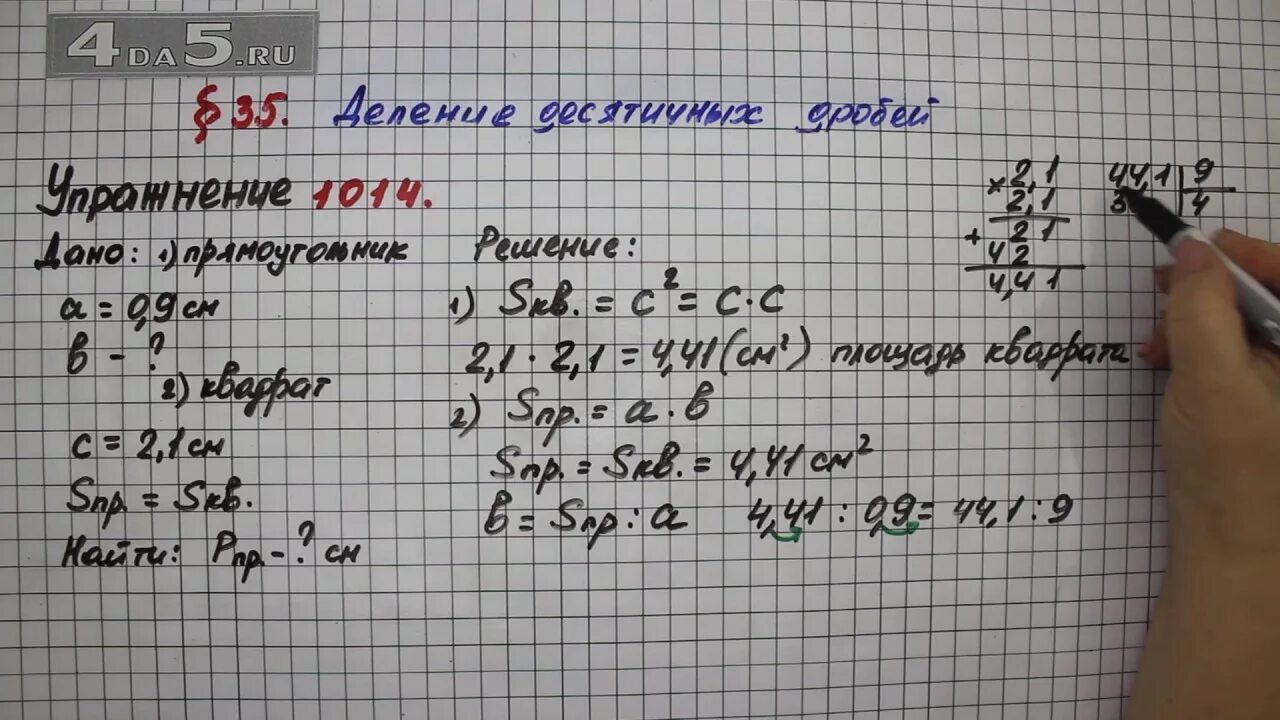 4DA5.RU
§ 35. Деление десятичных дробей
Упражнение 1014.
Дано: 1) прямоугольник
a = 0,9 см
в - ?
2) квадрат
c = 2,1 см
Sпр. = Sкв.
Найти: Pпр. - ? см
Решение:
1) Sкв. = c² = c · c
2,1 · 2,1 = 4,41 (см²) площадь квадрата
2) Sпр. = a · в
Sпр. = Sкв. = 4,41 см²
в = Sпр : a 4,41 : 0,9 = 44,1 : 9
× 2,1
2,1
+ 21
42
4,41
44,1 | 9
3 | 4